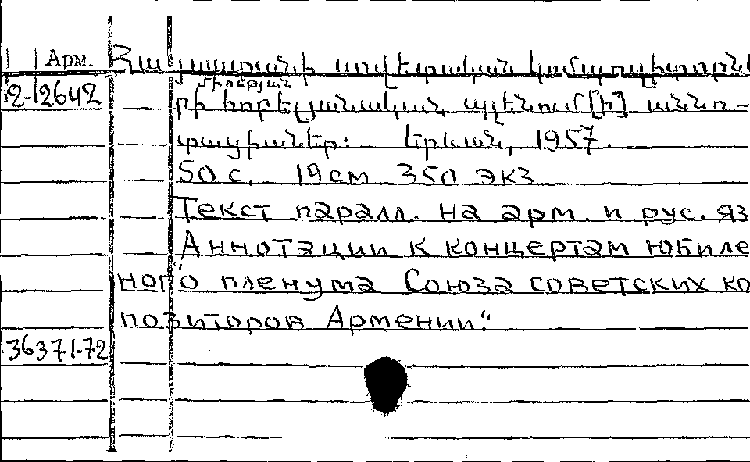 Арм. Հայաստանի սովետական կոմպոզիտորնե
2-12642 Միության
րի հոբելյանական պլենում[ի] աննո-
տացիաներ: Երևան, 1957.
50 с. 19 см 350 экз
Текст паралл. на арм. и рус. яз
"Аннотации к концертам юбиле
ного пленума Союза советских ко
позиторов Армении."
36371-72